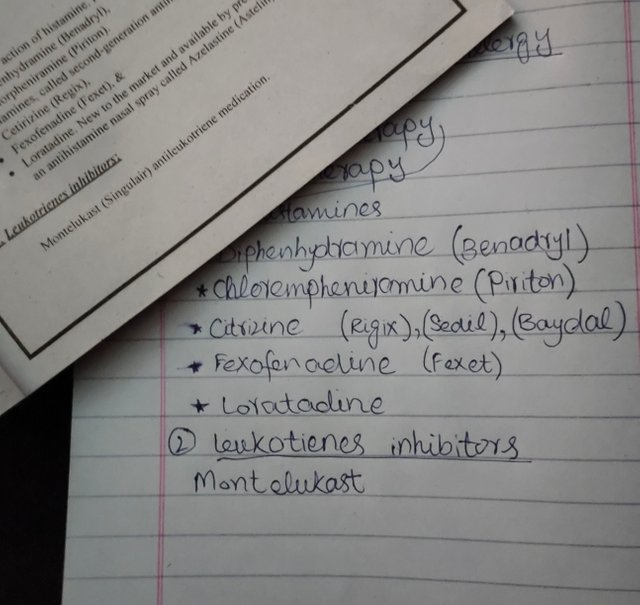 action of histamine,
nhydramine (Benadryl),
orpheniramine (Piriton).
tamines, called second-generation antih
Cetirizine (Regix),
• Fexofenadine (Fexet), &
• Loratadine. New to the market and available by pre
an antihistamine nasal spray called Azelastine (Astelin
Leukotrienes inhibitors:
Montelukast (Singulair) antileukotriene medication.
lergy
rapy
erapy
tamines
Diphenhydramine (Benadryl)
* Chlorempheniramine (Piriton)
* Citrizine (Rigix), (Sedil), (Baydal)
* Fexofenadine (Fexet)
* Loratadine
② leukotienes inhibitors
Montelukast